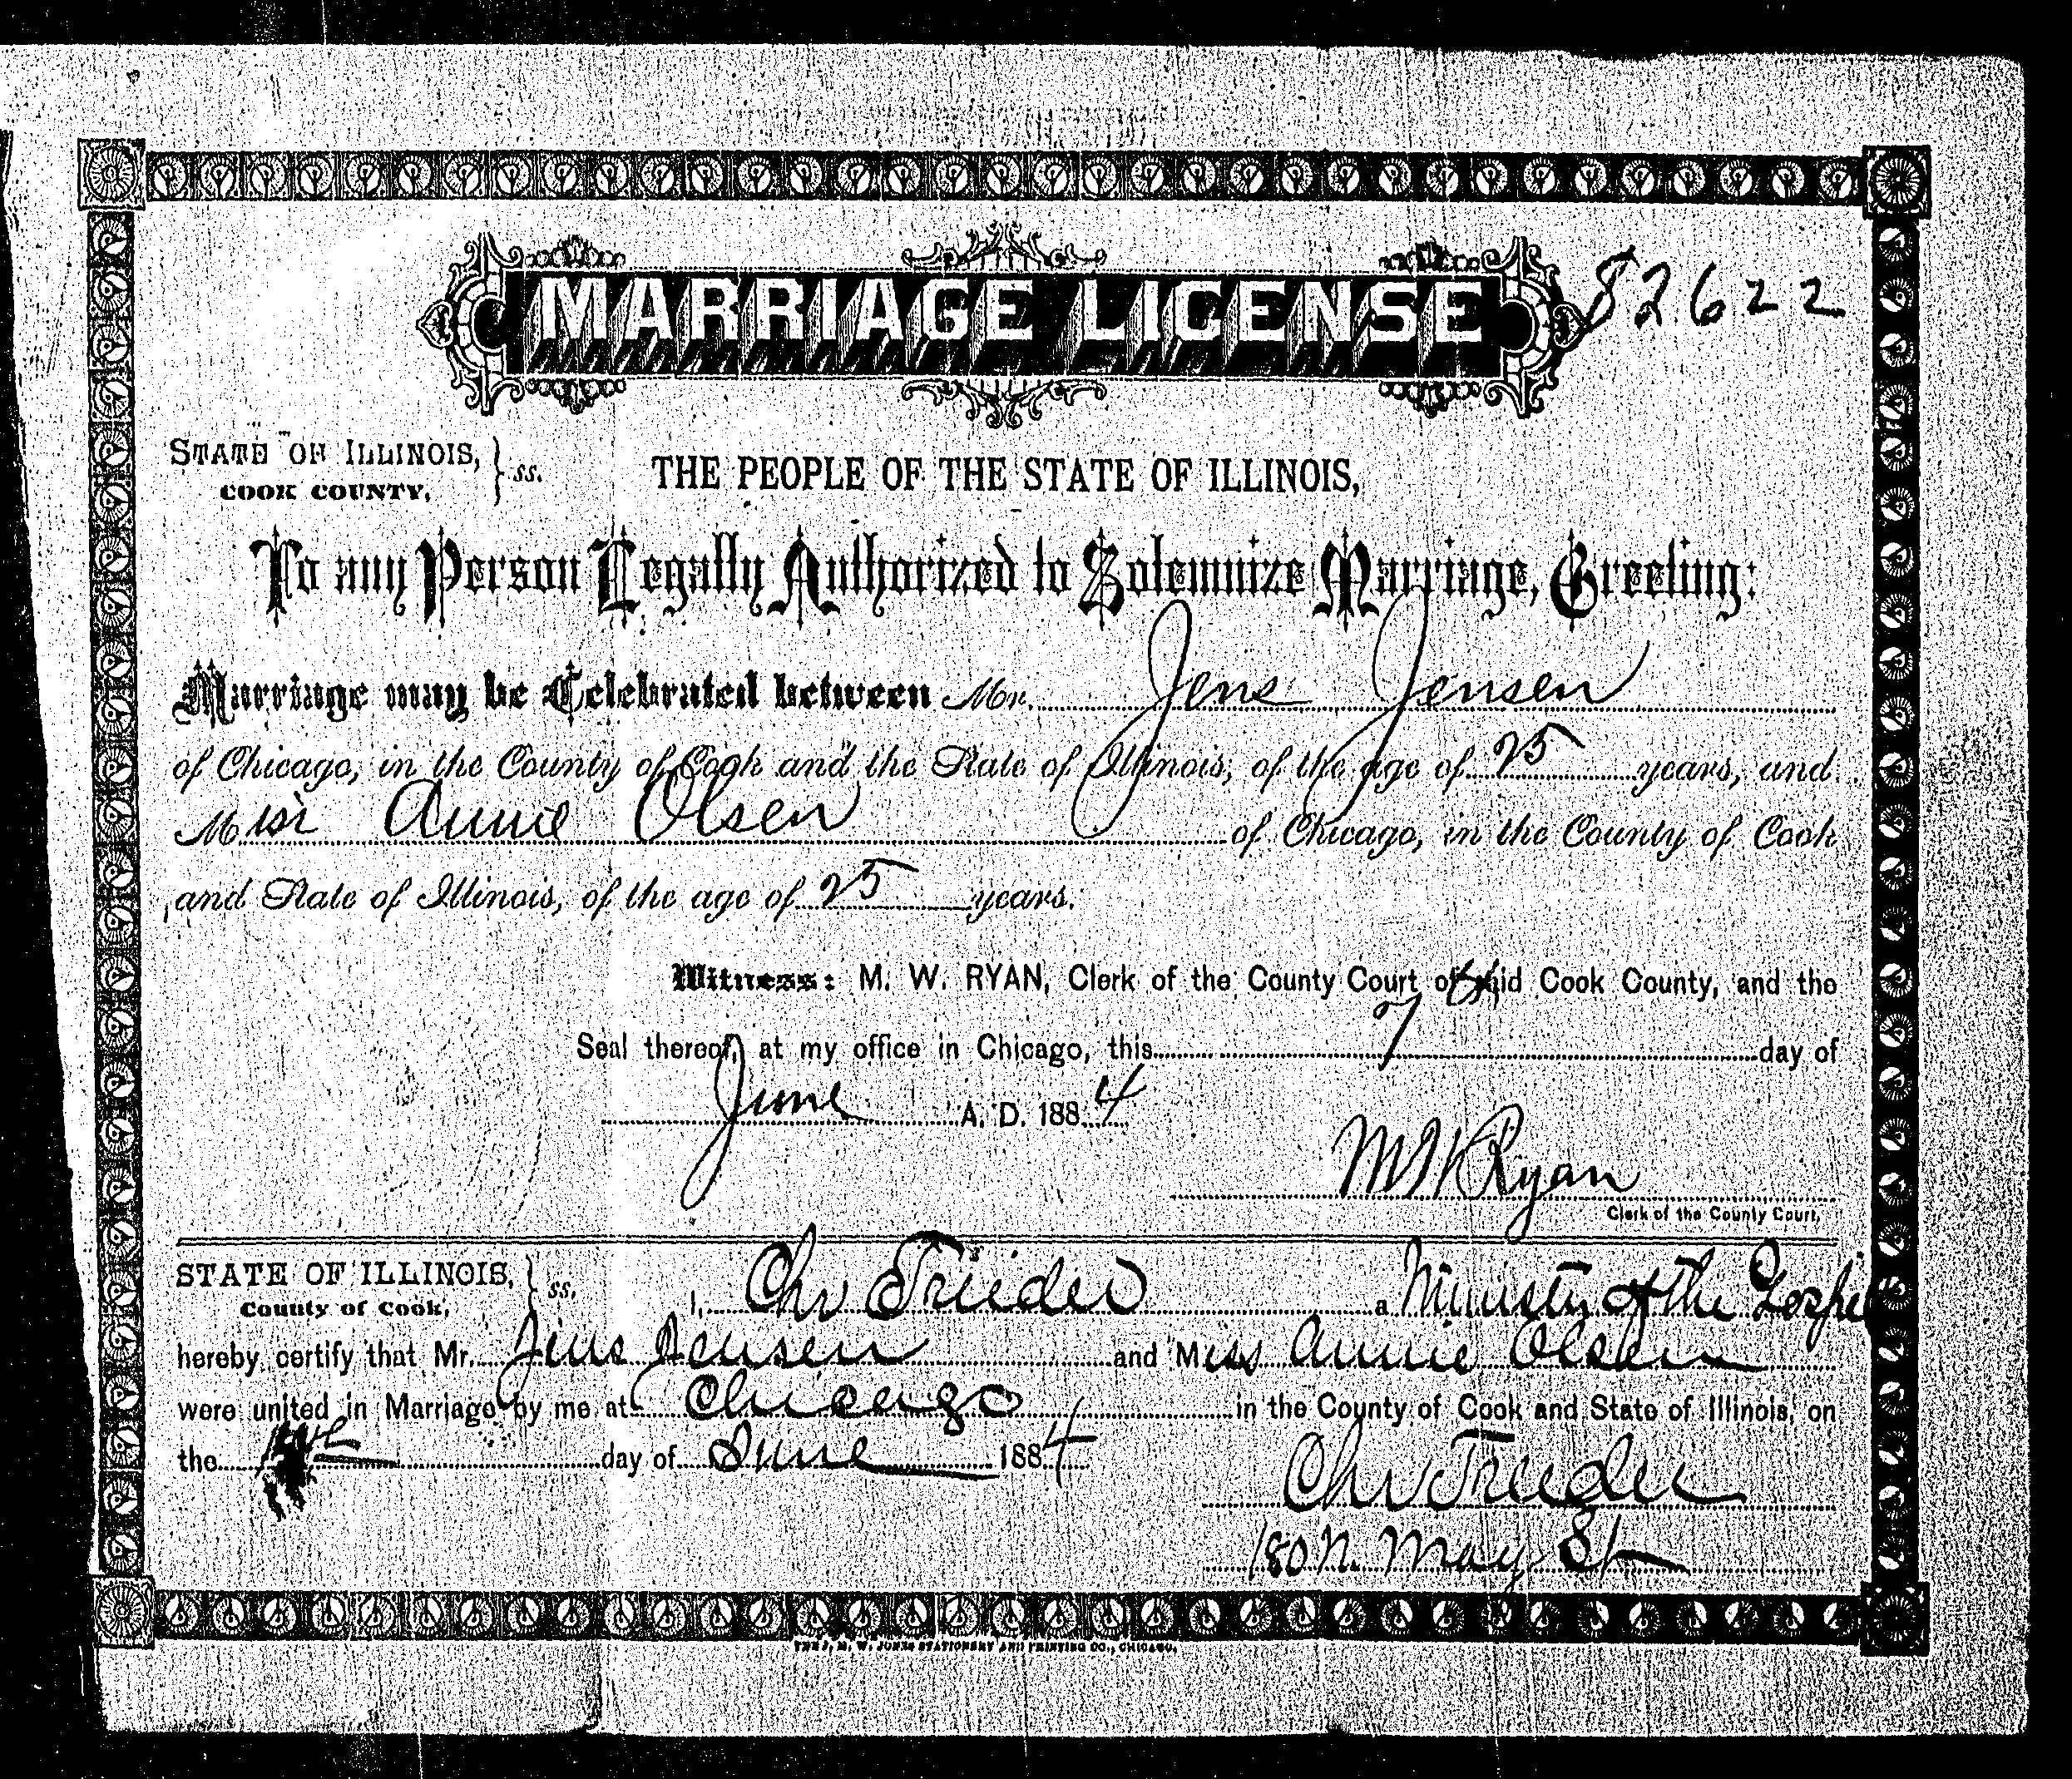 MARRIAGE LICENSE 82622
STATE OF ILLINOIS, COOK COUNTY, } ss. THE PEOPLE OF THE STATE OF ILLINOIS,
To any Person Legally Authorized to Solemnize Marriage, Greeting:
Marriage may be Celebrated between Mr. Jens Jensen
of Chicago, in the County of Cook and the State of Illinois, of the age of 25 years, and
Miss Annie Olsen of Chicago, in the County of Cook
and State of Illinois, of the age of 25 years.
Witness: M. W. RYAN, Clerk of the County Court of said Cook County, and the
Seal thereof, at my office in Chicago, this 7th day of
June A. D. 1884
M W Ryan
Clerk of the County Court,
STATE OF ILLINOIS, County of Cook, } ss. I, Chr Treider a Minister of the Gospel
hereby certify that Mr. Jens Jensen and Miss Annie Olsen
were united in Marriage by me at Chicago in the County of Cook and State of Illinois, on
the day of June 1884
Chr Treider
180 N. May St
THE J. M. W. JONES STATIONERY AND PRINTING CO., CHICAGO.